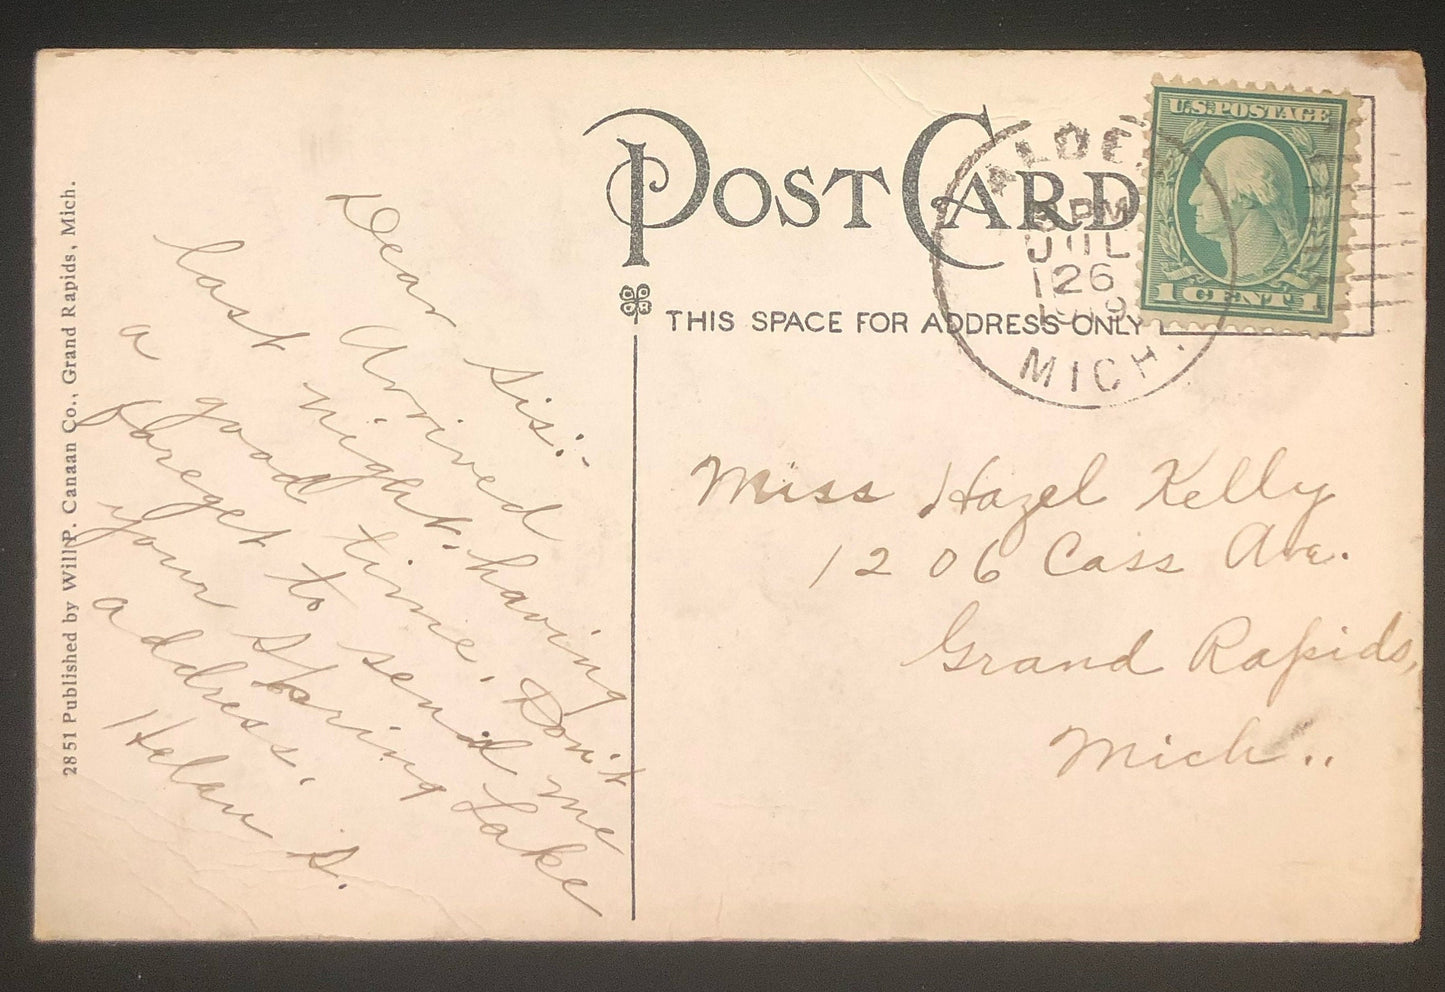 2851 Published by Will P. Canaan Co., Grand Rapids, Mich.
POST CARD
THIS SPACE FOR ADDRESS ONLY
U.S. POSTAGE
1 CENT 1
ALDEN
PM
JUL
26
MICH.
Dear Sis:-
Arrived
last night. having
a good time. Don't
foreget to send me
your Spring Lake
address.
Helen S.
Miss Hazel Kelly
1206 Cass Ave.
Grand Rapids,
Mich..